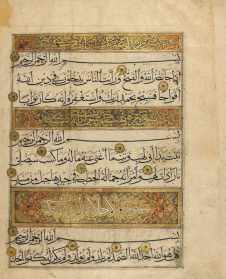 بسم الله الرحمن الرحيم
إذا جاء نصر الله والفتح ورأيت الناس يدخلون في دين الله
أفواجا فسبح بحمد ربك واستغفره إنه كان توابا
بسم الله الرحمن الرحيم
تبت يدا أبي لهب وتب ما أغنى عنه ماله وما كسب سيصلى
نارا ذات لهب وامرأته حمالة الحطب في جيدها حبل من مسد
بسم الله الرحمن الرحيم
قل هو الله أحد الله الصمد لم يلد ولم يولد ولم يكن له كفوا أحد